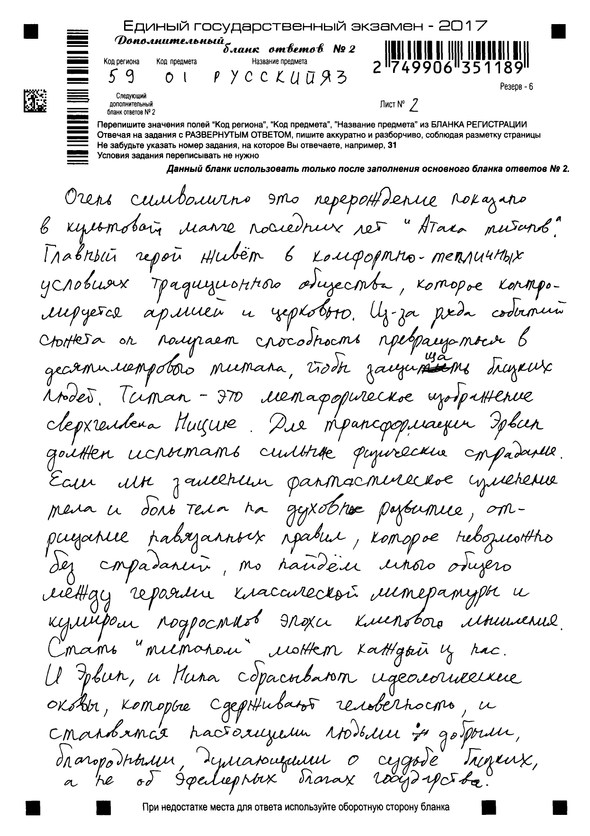 Единый государственный экзамен - 2017
Дополнительный бланк ответов № 2
Код региона Код предмета Название предмета
59 01 РУССКИЙ ЯЗ
2 749906 351189
Резерв - 6
Следующий
дополнительный
бланк ответов № 2
Лист № 2
Перепишите значения полей "Код региона", "Код предмета", "Название предмета" из БЛАНКА РЕГИСТРАЦИИ
Отвечая на задания с РАЗВЕРНУТЫМ ОТВЕТОМ, пишите аккуратно и разборчиво, соблюдая разметку страницы
Не забудьте указать номер задания, на которое Вы отвечаете, например, 31
Условия задания переписывать не нужно
Данный бланк использовать только после заполнения основного бланка ответов № 2.
Очень символично это перерождение показано
в культовой манге последних лет "Атака титанов".
Главный герой живёт в комфортно-тепличных
условиях традиционного общества, которое контро-
лируется армией и церковью. Из-за ряда событий
сюжета он получает способность превращаться в
десятиметрового титана, чтобы защищать близких
людей. Титан - это метафорическое изображение
сверхчеловека Ницше. Для трансформации Эрвин
должен испытать сильные физические страдание.
Если мы заменим фантастическое изменение
тела и боль тела на духовные развитие, от-
рицание навязанных правил, которое невозможно
без страданий, то найдём много общего
между героями классической литературы и
кумиром подростков эпохи клипового мышления.
Стать "титаном" может каждый из нас.
И Эрвин, и Нила сбрасывают идеологические
оковы, которые сдерживают человечность, и
становятся настоящими людьми - добрыми,
благородными, думающими о судьбе близких,
а не об эфемерных благах государства.
При недостатке места для ответа используйте оборотную сторону бланка